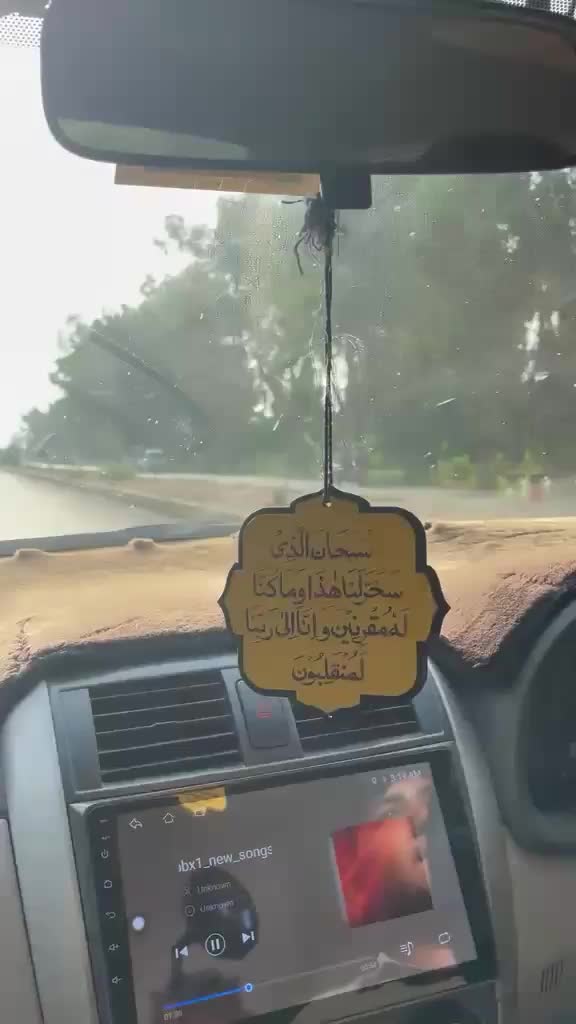 سبحان الذي
سخر لنا هذا وما كنا
له مقرنين وإنا إلى ربنا
لمنقلبون
bx1_new_songs
Unknown
Unknown